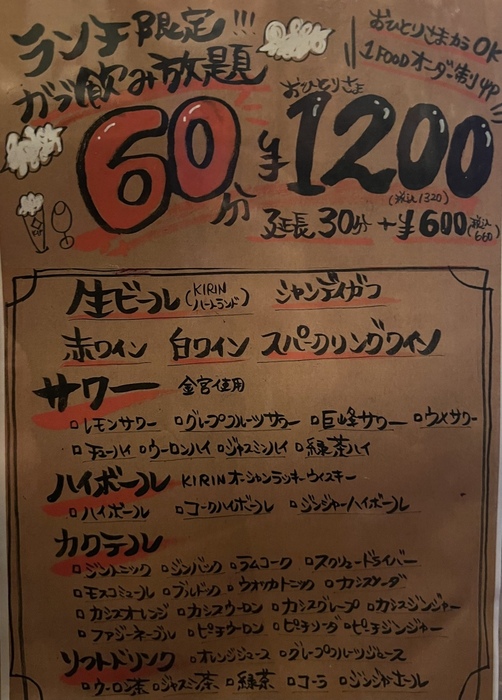 ランチ限定!!!
おひとりさまからOK
1FOODオーダー制
ガブ飲み放題
おひとりさま
60分 ¥1200
(税込1320)
延長30分+¥600 税込(660)
生ビール(KIRINハートランド) シャンディガフ
赤ワイン 白ワイン スパークリングワイン
サワー 金宮使用
レモンサワー グレープフルーツサワー 巨峰サワー ウメサワー
チューハイ ウーロンハイ ジャスミンハイ 緑茶ハイ
ハイボール KIRINオーシャンラッキーウィスキー
ハイボール コークハイボール ジンジャーハイボール
カクテル
ジントニック ジンバック ラムコーク スクリュードライバー
モスコミュール ブルドック ウォッカトニック カシスソーダ
カシスオレンジ カシスウーロン カシスグレープ カシスジンジャー
ファジーネーブル ピーチウーロン ピーチソーダ ピーチジンジャー
ソフトドリンク オレンジジュース グレープフルーツジュース
ウーロン茶 ジャスミン茶 緑茶 コーラ ジンジャーエール